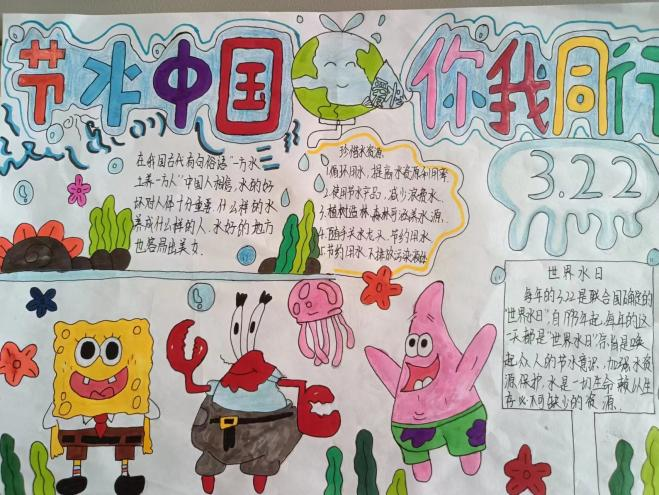 节水中国
你我同行
爱心
3.22
在我国古代有句俗语“一方水
土养一方人”中国人相信,水的好
坏对人体十分重要,什么样的水
养成什么样的人,水好的地方
也容易出美女.
珍惜水资源
1.循环用水,提高水资源利用率
2.使用节水产品,减少浪费水.
3.植树造林,森林可涵养水源.
4.随手关水龙头,节约用水
5.节约用水,不排放污染液体
世界水日
每年的3.22是联合国确定的
“世界水日”,自1993年起,每年的这
一天都是“世界水日”宗旨是唤
起众人的节水意识,加强水资
源保护.水是一切生命赖以生
存必不可缺少的资源.